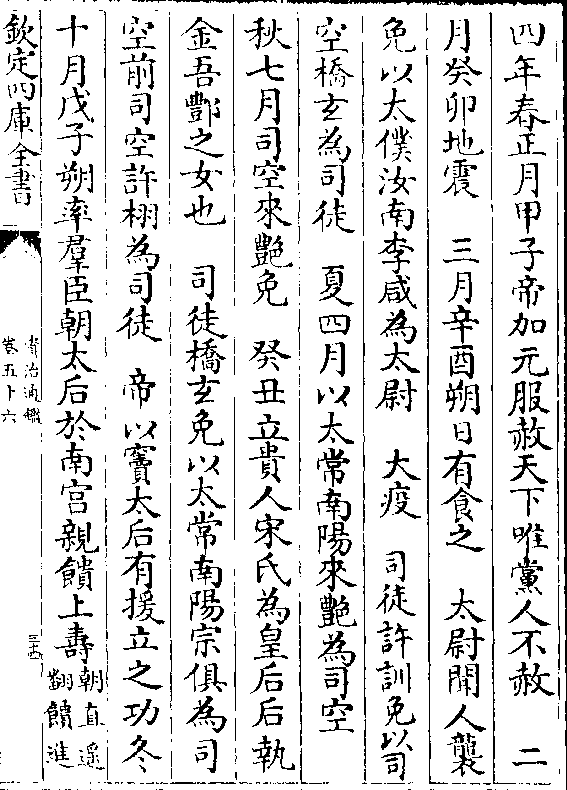 四年春正月甲子帝加元服赦天下唯黨人不赦　二
月癸卯地震　三月辛酉朔日有食之　太尉聞人襲
免以太僕汝南李咸為太尉　大疫　司徒許訓免以司
空橋玄為司徒　夏四月以太常南陽來艷為司空
秋七月司空來艷免　癸丑立貴人宋氏為皇后后執
金吾酆之女也　司徒橋玄免以太常南陽宗俱為司
空前司空許栩為司徒　帝以竇太后有援立之功冬
十月戊子朔率羣臣朝太后於南宫親饋上壽朝直遥
翻饋進
欽定四庫全書
資治通鑑
卷五十六